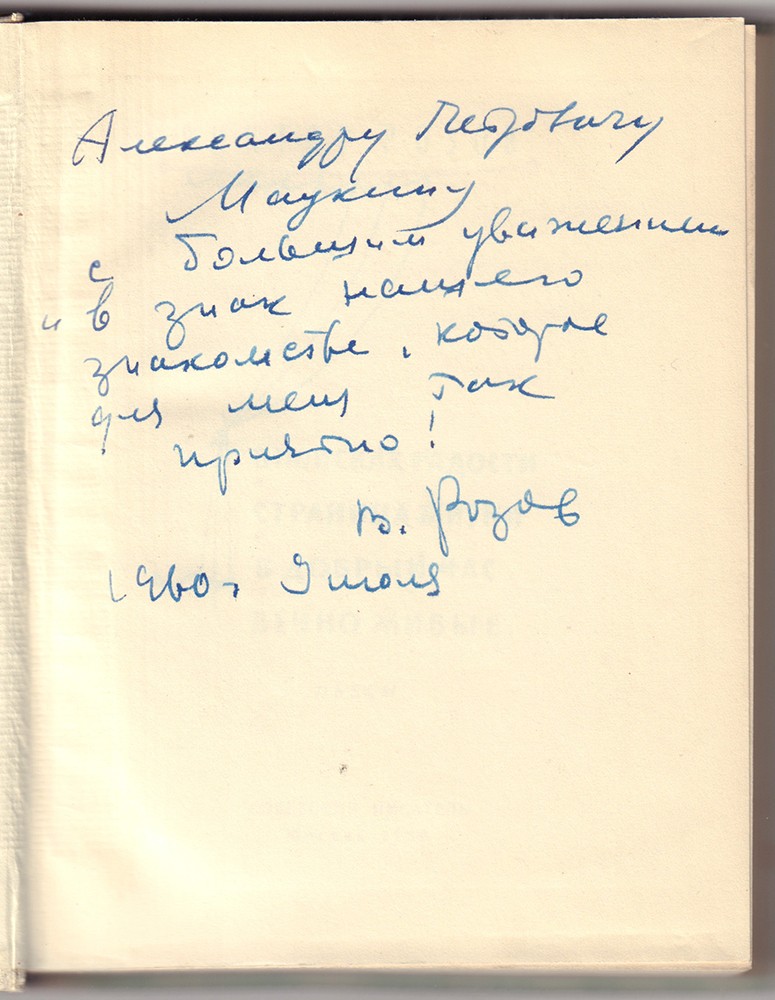 Александру Петровичу
Мацкину
с большим уважением
и в знак нашего
знакомства, которое
для меня так
приятно!
В. Розов
1960 г. 9 июля